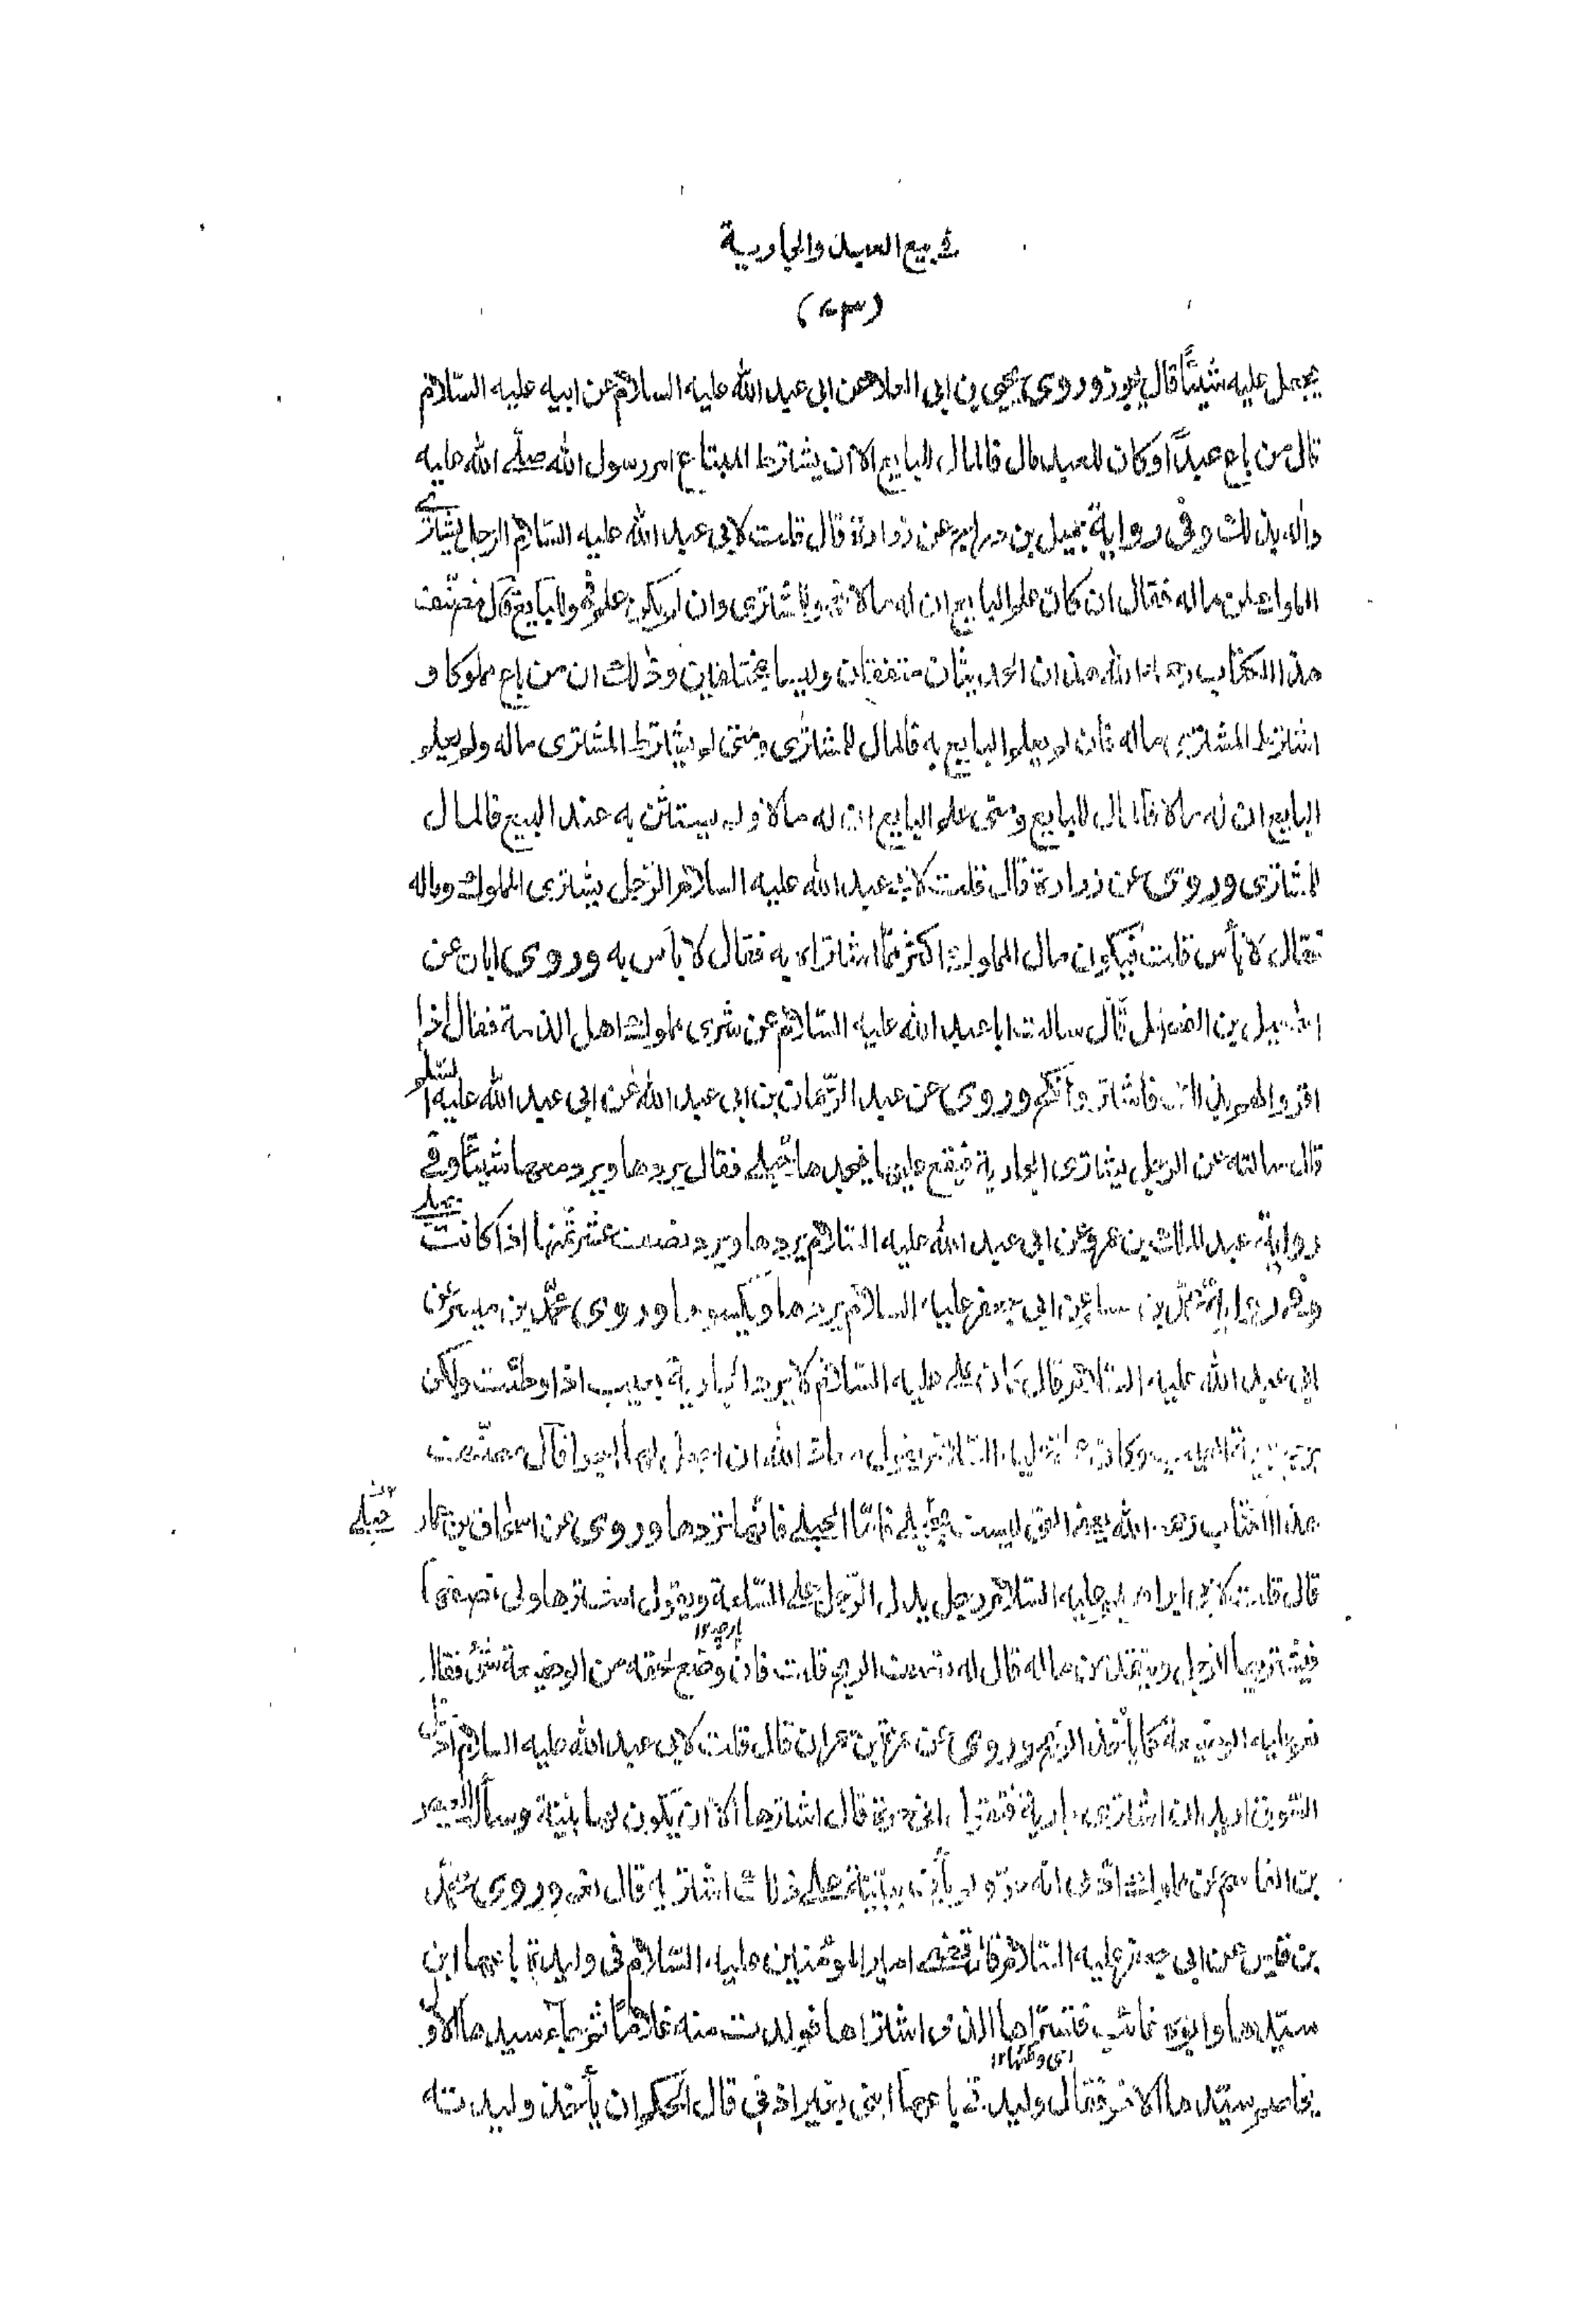 في بيع العبيد والجارية
يجعل عليه شيئًا قال يجوز وروى يحيى بن ابى العلاء عن ابى عبد الله عليه السلام عن ابيه عليه السّلام
قال من باع عبدًا وكان للعبد مال فالمال للبايع الا ان يشترط المبتاع امر رسول الله صلّى الله عليه
واله بذلك وفى رواية جميل بن دراج عن زرارة قال قلت لابى عبد الله عليه السّلام الرجل يشترى
المملوك لمن ماله فقال ان كان علم البايع ان له مالا فهو للمشترى وان لم يكن علم فهو للبايع قال مصنّف
هذا الكتاب رحمه الله هذان الحديثان متفقان وليسا بمختلفين وذلك ان من باع مملوكا و
اشترط المشترى ماله فان لم يعلم البايع به فالمال للمشترى ومتى لم يشترط المشترى ماله ولم يعلم
البايع ان له مالا فالمال للبايع ومتى علم البايع ان له مالا ولم يستثن به عند البيع فالمال
للمشترى وروى عن زرارة قال قلت لابى عبد الله عليه السلام الرّجل يشترى المملوك وماله
فقال لا بأس قلت فيكون مال المملوك اكثر ممّا اشتراه به فقال لا بأس به وروى ابان عن
اسمعيل بن الفضل قال سالت ابا عبد الله عليه السّلام عن شرى مملوك اهل الذمة فقال اذا
اقروا لهم بذلك فاشتر وانكح وروى عن عبد الرّحمان بن ابى عبد الله عن ابى عبد الله عليه السّلم
قال سالته عن الرجل يشترى الجارية فيقع عليها فيجدها حبلى فقال يردها ويرد معها شيئًا وفى
رواية عبد الملك بن عمرو عن ابى عبد الله عليه السّلام يردها ويرد نصف عشر ثمنها اذا كانت حبلى
وفى رواية محمّد بن مسلم عن ابى جعفر عليه السلام يردها ويكسوها وروى محمّد بن ميسر عن
ابى عبد الله عليه السّلام قال كان على عليه السّلام لا يرد الجارية بعيب اذا وطئت ولكن
يرجع بقيمة العيب وكان على عليه السّلام يقول معاذ الله ان اجعل لها اجرا قال مصنّف
هذا الكتاب رحمه الله يعنى التى ليست بحبلى فامّا الحبلى فانّها تردها وروى عن اسحاق بن عمار
قال قلت لابى ابراهيم عليه السّلام رجل يدل الرّجل على السّلعة ويقول اشترها ولى نصفها
فيشتريها الرجل وينقد من ماله قال له نصف الربح قلت فان وضع لحقه من الوضيعة شئ فقال
نعم عليه الوضيعة كما يأخذ الرّبح وروى عن حمزة بن حمران قال قلت لابى عبد الله عليه السلام ادخل
السّوق اريد ان اشترى جارية فتقول انى حرة قال اشترها الا ان يكون لها بينة وسأله العيص
بن القاسم عن مملوك ادّعى انه حرّ ولم يأت ببيّنة على ذلك اشتريه قال نعم وروى محمّد
بن قيس عن ابى جعفر عليه السّلام قال قضى امير المؤمنين عليه السّلام فى وليدة باعها ابن
سيّدها وابوه غائب فتسرّاها الذى اشتراها فولدت منه غلامًا ثم جاء سيدها الاوّل
اى وطئها ١٢
يخاصم سيّدها الاخر فقال وليدتى باعها ابنى بغير اذنى قال الحكم ان يأخذ وليدته